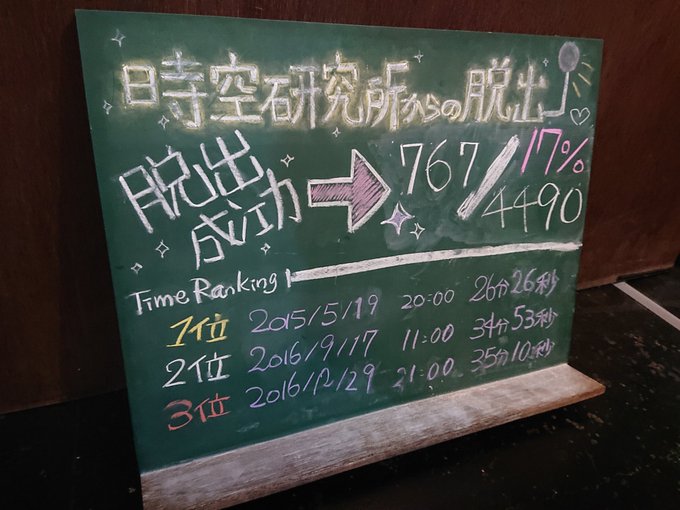 時空研究所からの脱出
脱出
成功
767/4490
17%
Time Ranking
1位 2015/5/19 20:00 26分26秒
2位 2016/9/17 11:00 34分53秒
3位 2016/12/29 21:00 35分10秒